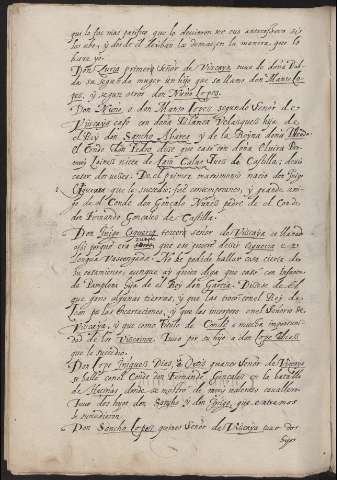 que lo fue mas pacifico que lo devieron ser sus antecessores
Don Zuria primero señor de Vizcaya, tuvo de doña
da su segunda muger un hijo que se llamo don Manso Lo-
pez, y segun otros don Nuño Lopez.
Don Nuño, o don Manso Lopez segundo Señor de
Vizcaya caso con doña Velazquez hija de
el Rey don Sancho Abarca y de la Reyna doña
el Conde don Pedro dize que caso con doña Elvira Ber-
mui Lainez nieta de Lain Calvo Juez de Castilla; devio
caser dos vezes. De el primer matrimonio nacio don Iñigo
Ezquerra que le sucedio; fue contemporaneo, y grande ami-
go de el Conde don Gonçalo Nuñez padre de el Con de
don Fernando Gonçales de Castilla.
Don Iñigo Ezquerra tercero señor de Vizcaya se llamò
assi porque era zurdo que eso quiere dezir Ezquerra en
lengua Vascongada. No he podido hallar cosa cierta de
su casamiento; aunque ay quien diga que casò con Infanta
de Pamplona hija de el Rey don Garcia. Dizese de el
que ganò algunas tierras, y que las trocò con el Rey de
Leon por las Encartaciones, y que las incorporò en el Señorio de
Vizcaya, y que como titulo de Conde a mucha importuni-
dad de los Vizcainos. Tuvo por su hijo a don Lope Diaz
que le sucedio.
Don Lope Iñiguez Diaz, o Ortiz quarto Señor de Vizcaya
se hallò con el Conde don Fernando Gonçalez en la batalla
de Hazinas, donde se mostrò de muy valeroso cavallero.
Tuvo dos hijos don Sancho y don Iñigo, que entrambos
le sucedieron.
Don Sancho Lopez quinto Señor de Vizcaya tuvo dos
hijos